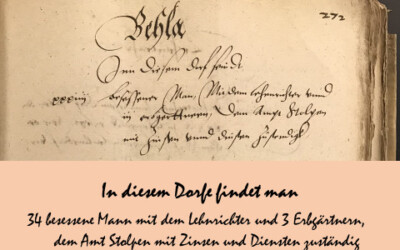 Behla
272
Inn diesem dorf seindt
xxxiiij besessener Man, Mit dem lehenrichter unnd
iij erbgerttnern, Dem Ampt Stolpen
mit Zinsen unnd diensten zustendigk
In diesem Dorfe findet man
34 besessene Mann mit dem Lehnrichter und 3 Erbgärtnern,
dem Amt Stolpen mit Zinsen und Diensten zuständig